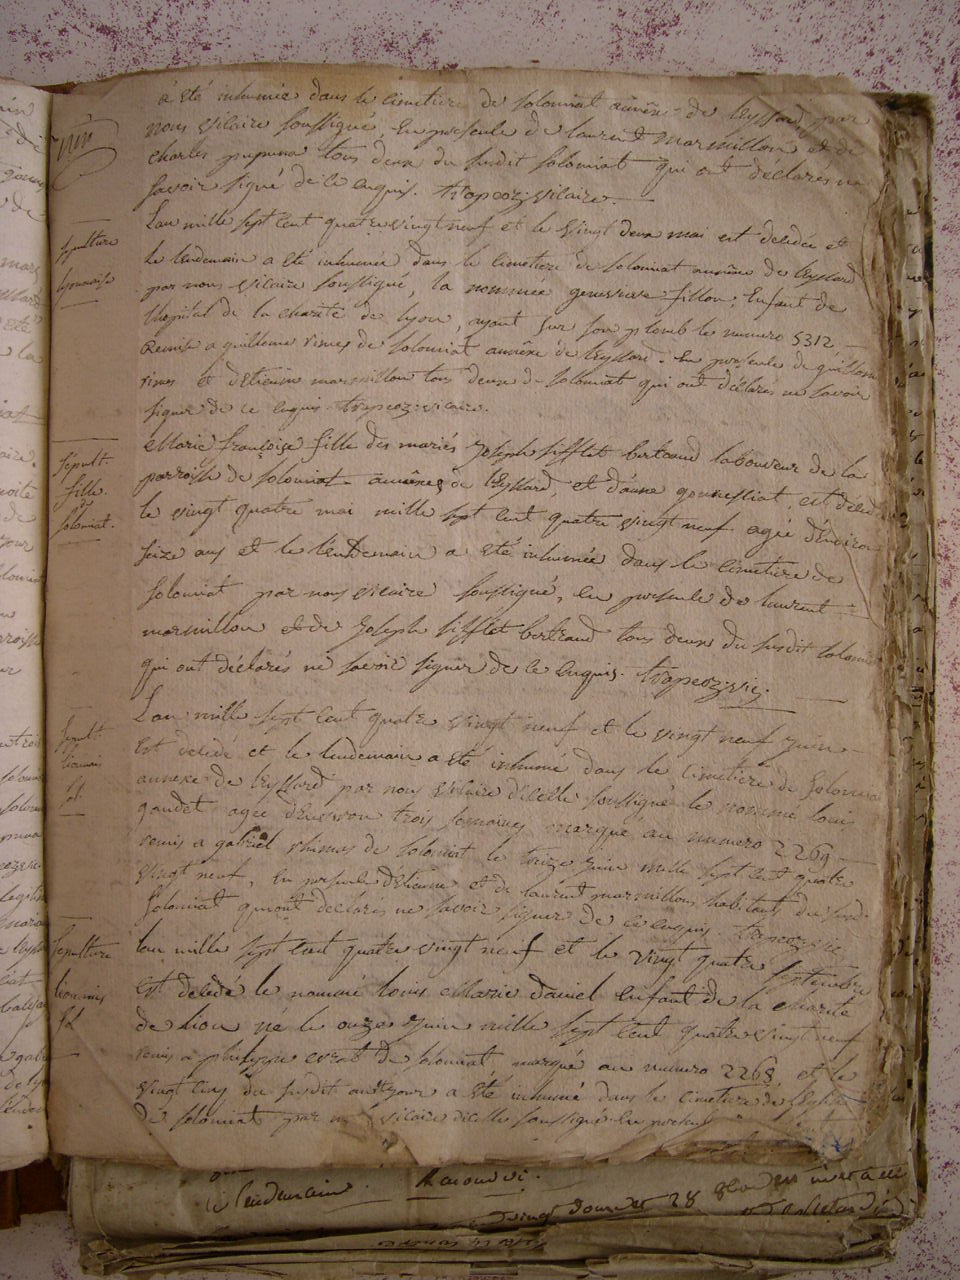 a été inhumée dans le cimetière de solomiat annexe de leyssard par
nous vicaire soussigné, En presence de laurent marmillon et de
charles tous deux du susdit solomiat qui ont déclarés ne
savoir signé de ce enquis. trapeoz: vicaire.
Lan mille sept cent quatre vingt neuf et le vingt deux mai est décédée et
le lendemain a été inhumée dans le cimetiere de solomiat annexe de leyssard
par nous vicaire soussigné, la nommée genevieve fillon, Enfant de
lhopital de la charité de lyon, ayant sur son plomb le numero 5312
Remise a guillieme rimes de solomiat annexe de leyssard. En presence de guilleme
rimes et detienne marmillon tous deux de solomiat qui ont déclarés ne savoir
signer de ce enquis. trapeoz: vicaire.
sepulture
lyonnaise
Marie françoise fille des mariés Joseph sifflet bertrand laboureur de la
parroisse de solomiat annexes de leyssard, et d'anne est décéd
le vingt quatre mai mille sept cent quatre vingt neuf agée d'environ
seize ans et le lendemain a été inhumée dans le cimetiere de
solomiat par nous vicaire soussigné, en presence de laurent
marmillon et de Joseph sifflet bertrand tous deux du susdit solomiat
qui ont déclarés ne savoir signer de ce enquis. trapeoz: vic.
sepult.
fille
de
solomiat.
Lan mille sept cent quatre vingt neuf et le vingt neuf juin
est décédé et le lendemain a été inhumé dans le cimetiere de solomia
annexe de leyssard par nous vicaire dicelle soussigné le nomme loui
gaudet agé d'environ trois semaines marque au numero 2269
remis a gabriel rhimes de solomiat le treize juin mille sept cent quatre
vingt neuf, En presence detienne et de laurent marmillons habitants du susd.
solomiat qui ont declarés ne savoir signer de ce enquis. trapeoz vic
sepult
lionnais
sepulture
lan mille sept cent quatre vingt neuf et le vingt quatre septembre
est décédé le nommé louis Marie daniel Enfant de la charité
de lion né le onze juin mille sept cent quatre vingt neuf
remis a philippe de solomiat marqué au numero 2268, et le
vingt cinq du susdit a été inhumé dans le cimetiere de l'Eglise
de solomiat par vicaire dicelle soussigné En presen
lionnais
le lendemain.
28